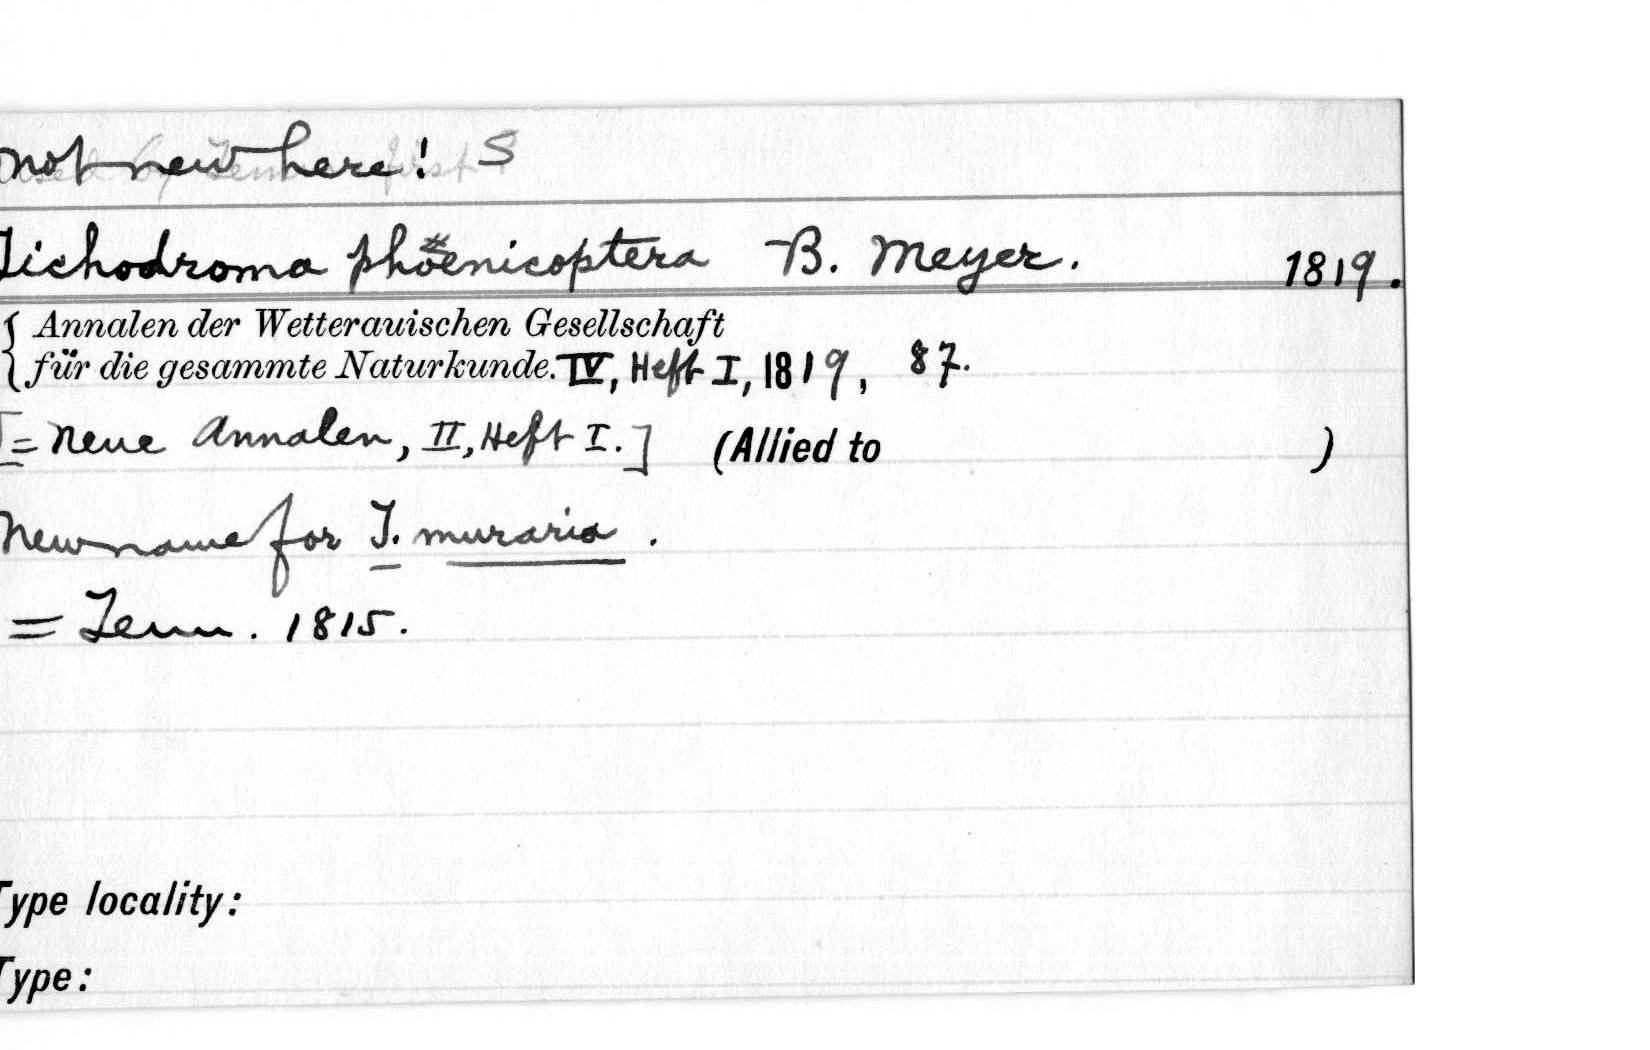 not new here! S
Tichodroma phoenicoptera B. Meyer. 1819.
{ Annalen der Wetterauischen Gesellschaft
für die gesammte Naturkunde. IV, Heft I, 1819, 87.
[= Neue Annalen, II, Heft I.] (Allied to )
New name for T. muraria.
= Temm. 1815.
Type locality:
Type: